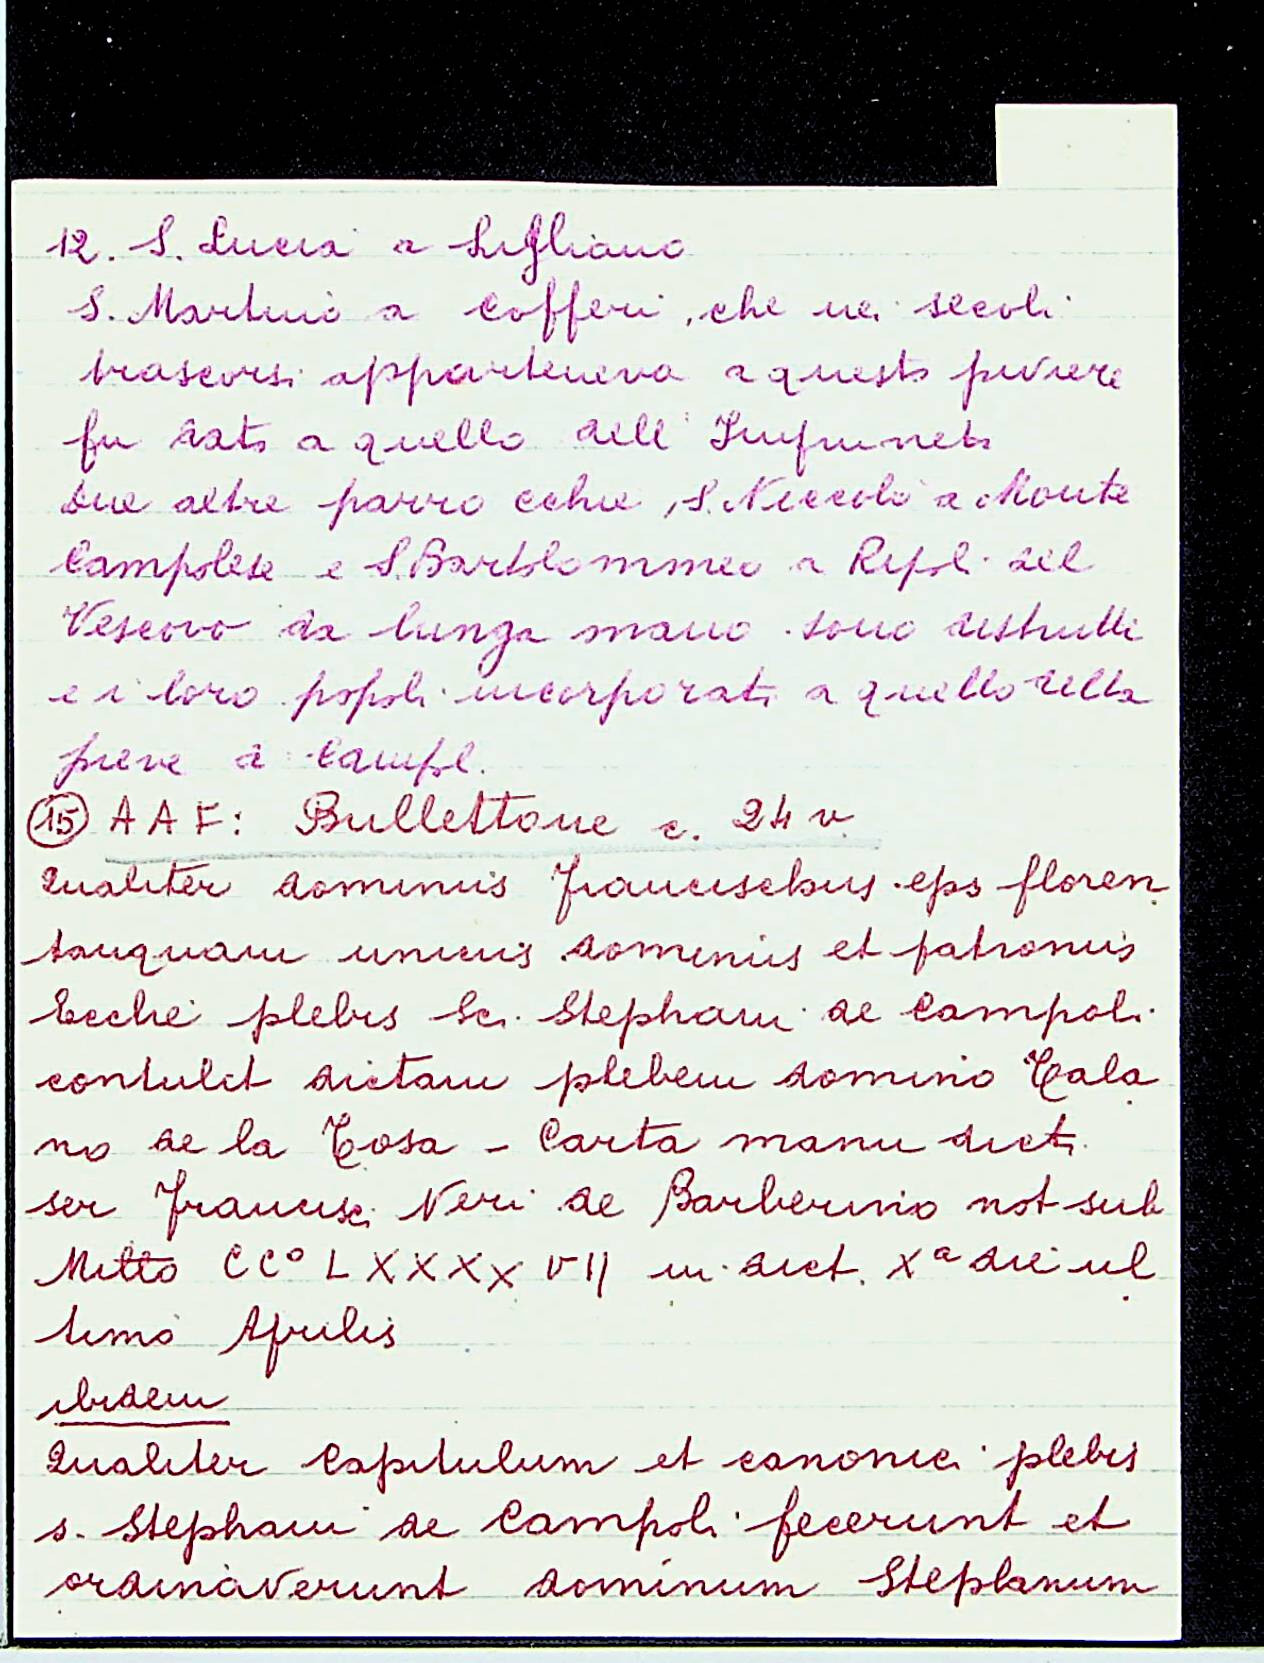 12. S. Lucia a Luigliano
S. Martino a Cofferi, che nei secoli
trascorsi apparteneva a questo piviere
fu dato a quello dell'Impruneta
due altre parrocchie, S. Niccolò a Monte
Campolese e S. Bartolommeo a Ripoli del
Vescovo da lunga mano sono distrutti
e i loro popoli incorporati a quello della
pieve a Campl.
(15) AAF: Bullettone c. 24 v.
Qualiter dominus Francischus eps floren
tanquam unicus dominus et patronus
Ecche plebis Sci Stephani de Campoli
contulit dictam plebem domino Tala
no de la Tosa - Carta manu dicti
ser Francisci Neri de Barberino not sub
Millo CC° LXXXXVII indict. Xª die ul
timo Aprilis
ibidem
Qualiter Capitulum et canonici plebis
s. Stephani de Campoli fecerunt et
ordinaverunt dominum Stephanum